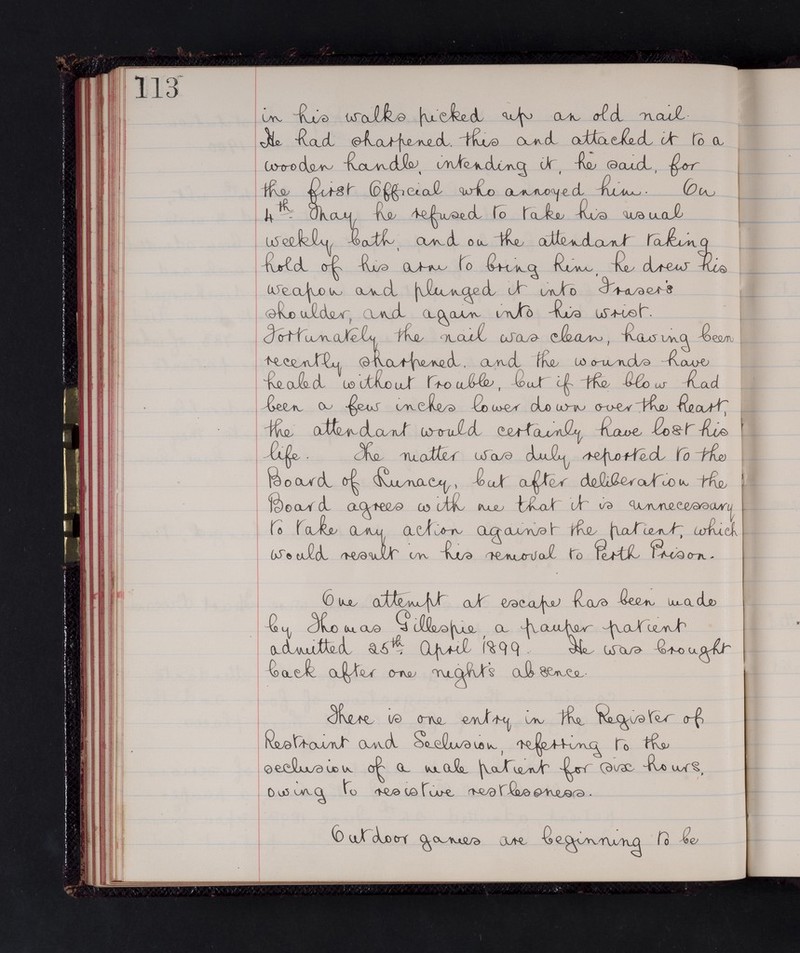 113
in his walks picked up an old nail.
He had sharpened this and attached it to a
wooden handle, intending it, he said, for
the first Official who annoyed him. On
4th May he refused to take his usual
weekly bath, and on the attendant taking
hold of his arm to bring him, he drew his
weapon and plunged it into Fraser's
shoulder, and again into his wrist.
Fortunately the nail was clean, having been
recently sharpened, and the wounds have
healed without trouble, but if the blow had
been a few inches lower down over the heart,
the attendant would certainly have lost his
life. The matter was duly reported to the
Board of Lunacy, but after deliberation the
Board agrees with me that it is unnecessary
to take any action against the patient, which
would result in his removal to Perth Prison.
One attempt at escape has been made
by Thomas Gillespie, a pauper patient
admitted 25th April 1899. He was brought
back after one night's absence.
There is one entry in the Register of
Restraint and Seclusion, referring to the
seclusion of a male patient for six hours,
owing to resistive restlessness.
Outdoor games are beginning to be